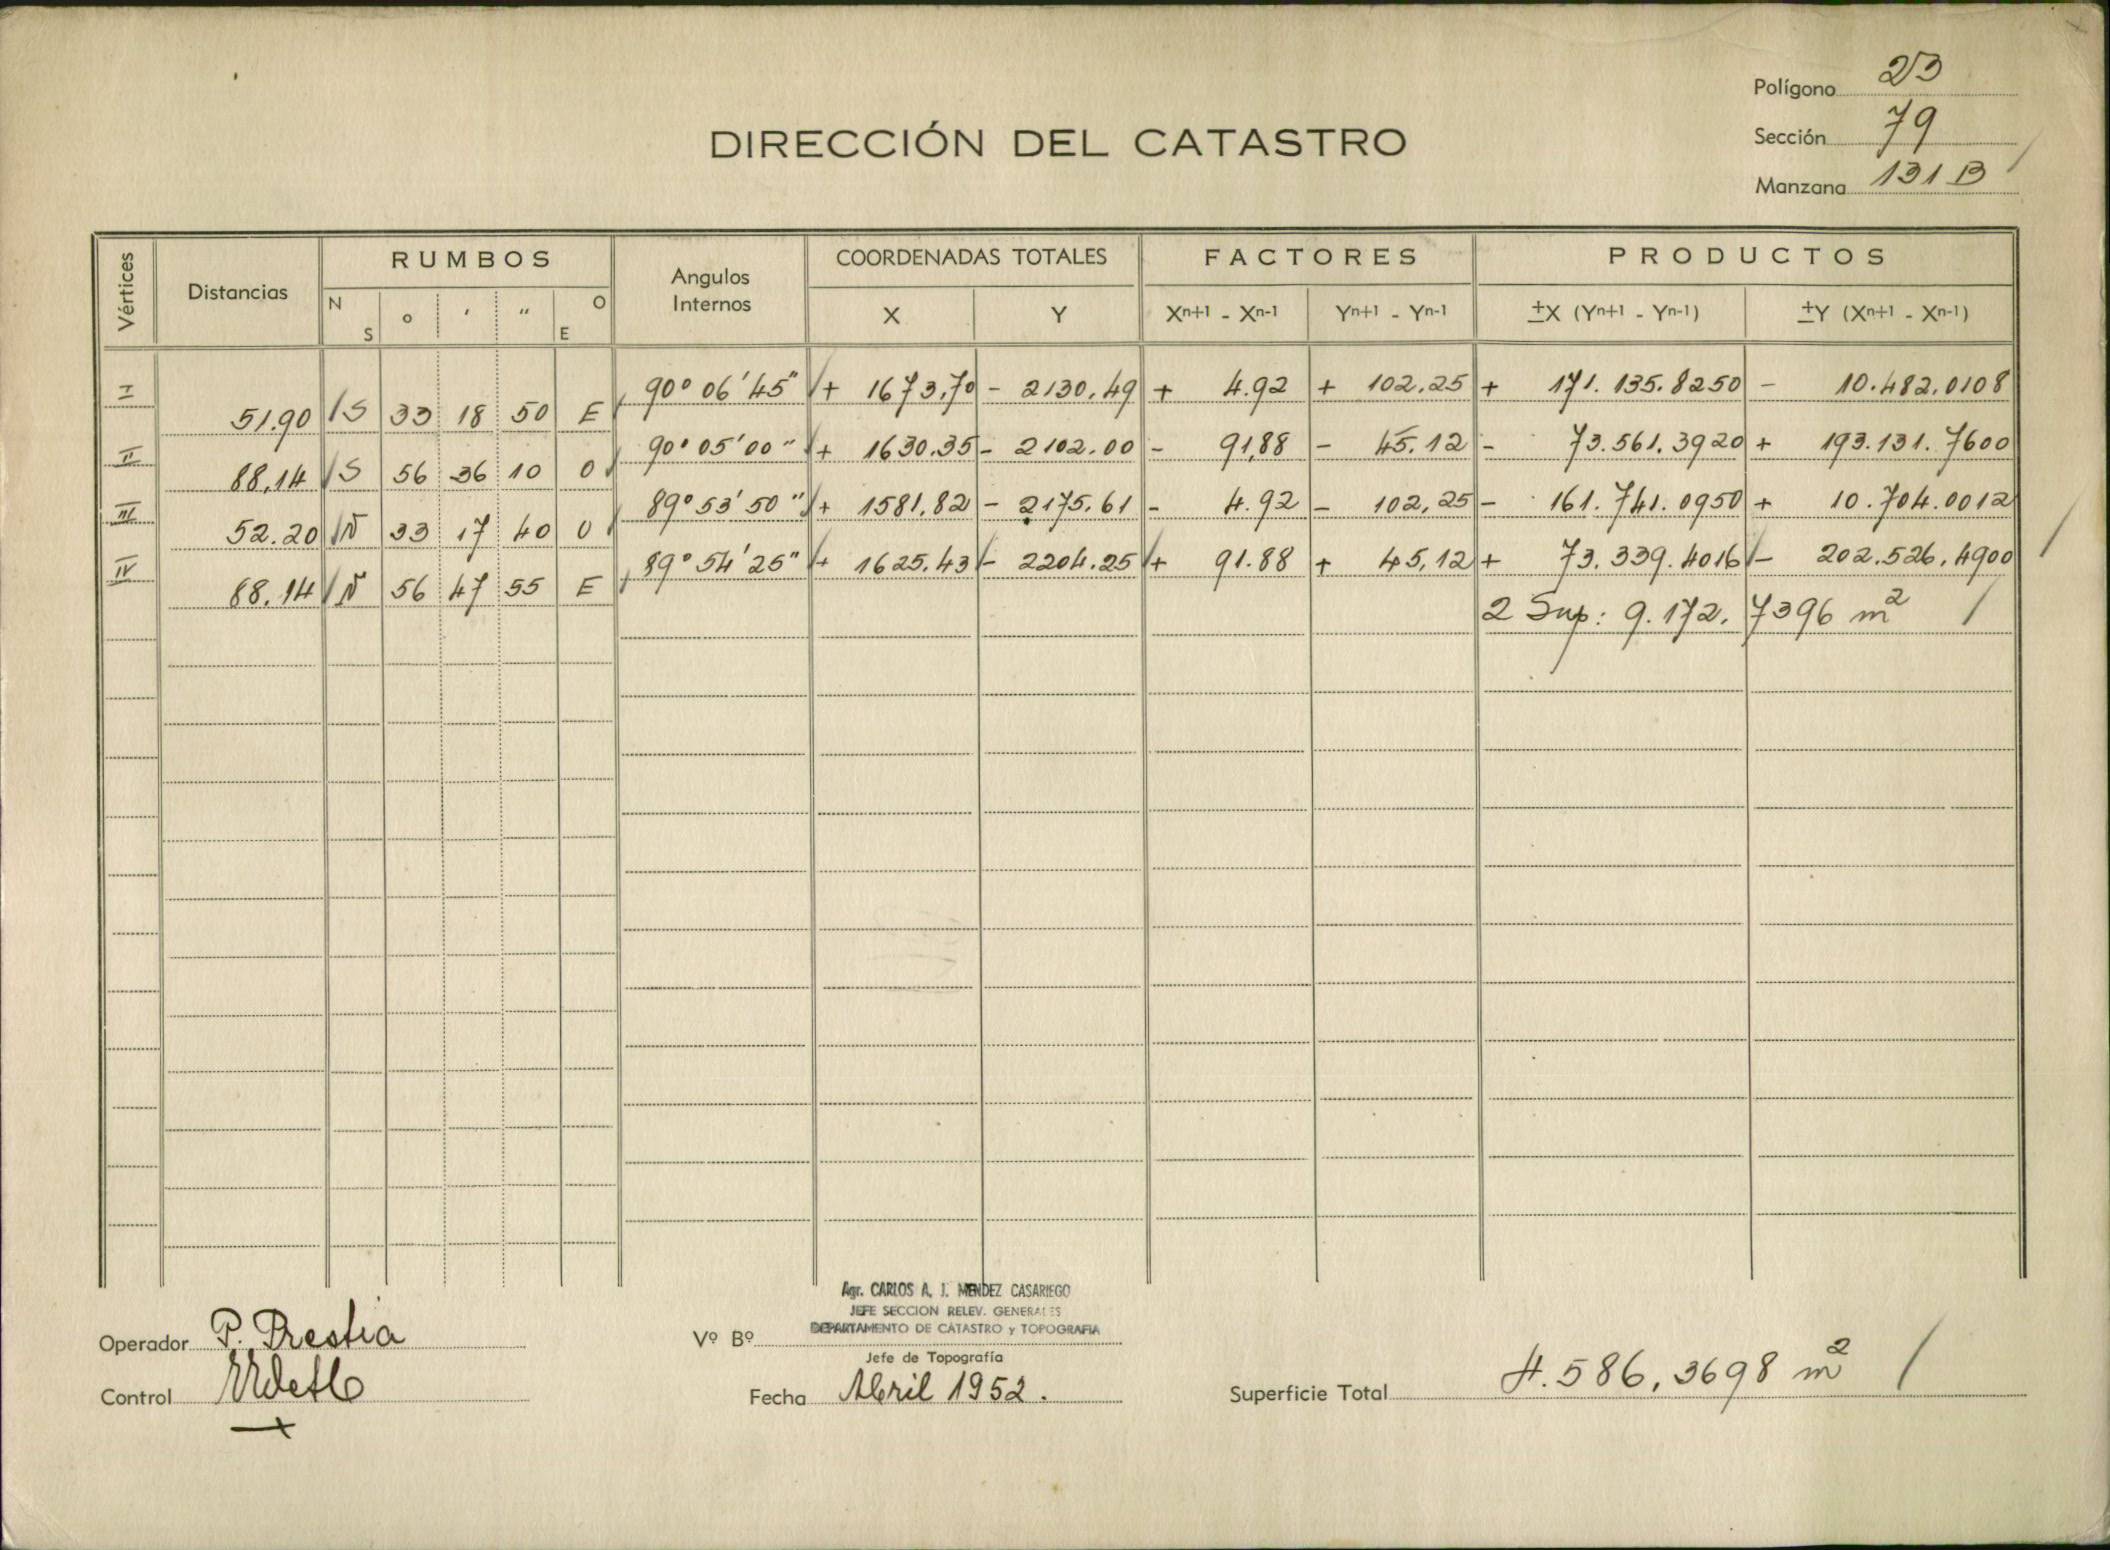 Polígono 23
DIRECCIÓN DEL CATASTRO
Sección 79
Manzana 131 B
Vértices Distancias RUMBOS Angulos Internos COORDENADAS TOTALES FACTORES PRODUCTOS
N S o ' " O E X Y Xn+1 - Xn-1 Yn+1 - Yn-1 ±X (Yn+1 - Yn-1) ±Y (Xn+1 - Xn-1)
I 90° 06' 45" + 1673,70 - 2130,49 + 4.92 + 102,25 + 171.135.8250 - 10.482,0108
51.90 S 33 18 50 E
II 90° 05' 00" + 1630.35 - 2102.00 - 91,88 - 45.12 - 73.561.3920 + 193.131.7600
88,14 S 56 36 10 O
III 89° 53' 50" + 1581,82 - 2175,61 - 4.92 - 102,25 - 161.741.0950 + 10.704.0012
52.20 N 33 17 40 O
IV 89° 54' 25" + 1625,43 - 2204.25 + 91.88 + 45,12 + 73.339.4016 - 202.526,4900
88.14 N 56 47 55 E
2 Sup: 9.172,7396 m2
Agr. CARLOS A. J. MENDEZ CASARIEGO
JEFE SECCION RELEV. GENERALES
DEPARTAMENTO DE CATASTRO y TOPOGRAFIA
Operador P. Prestia
Vº Bº
Jefe de Topografía
Control
Fecha Abril 1952.
Superficie Total 4.586,3698 m2